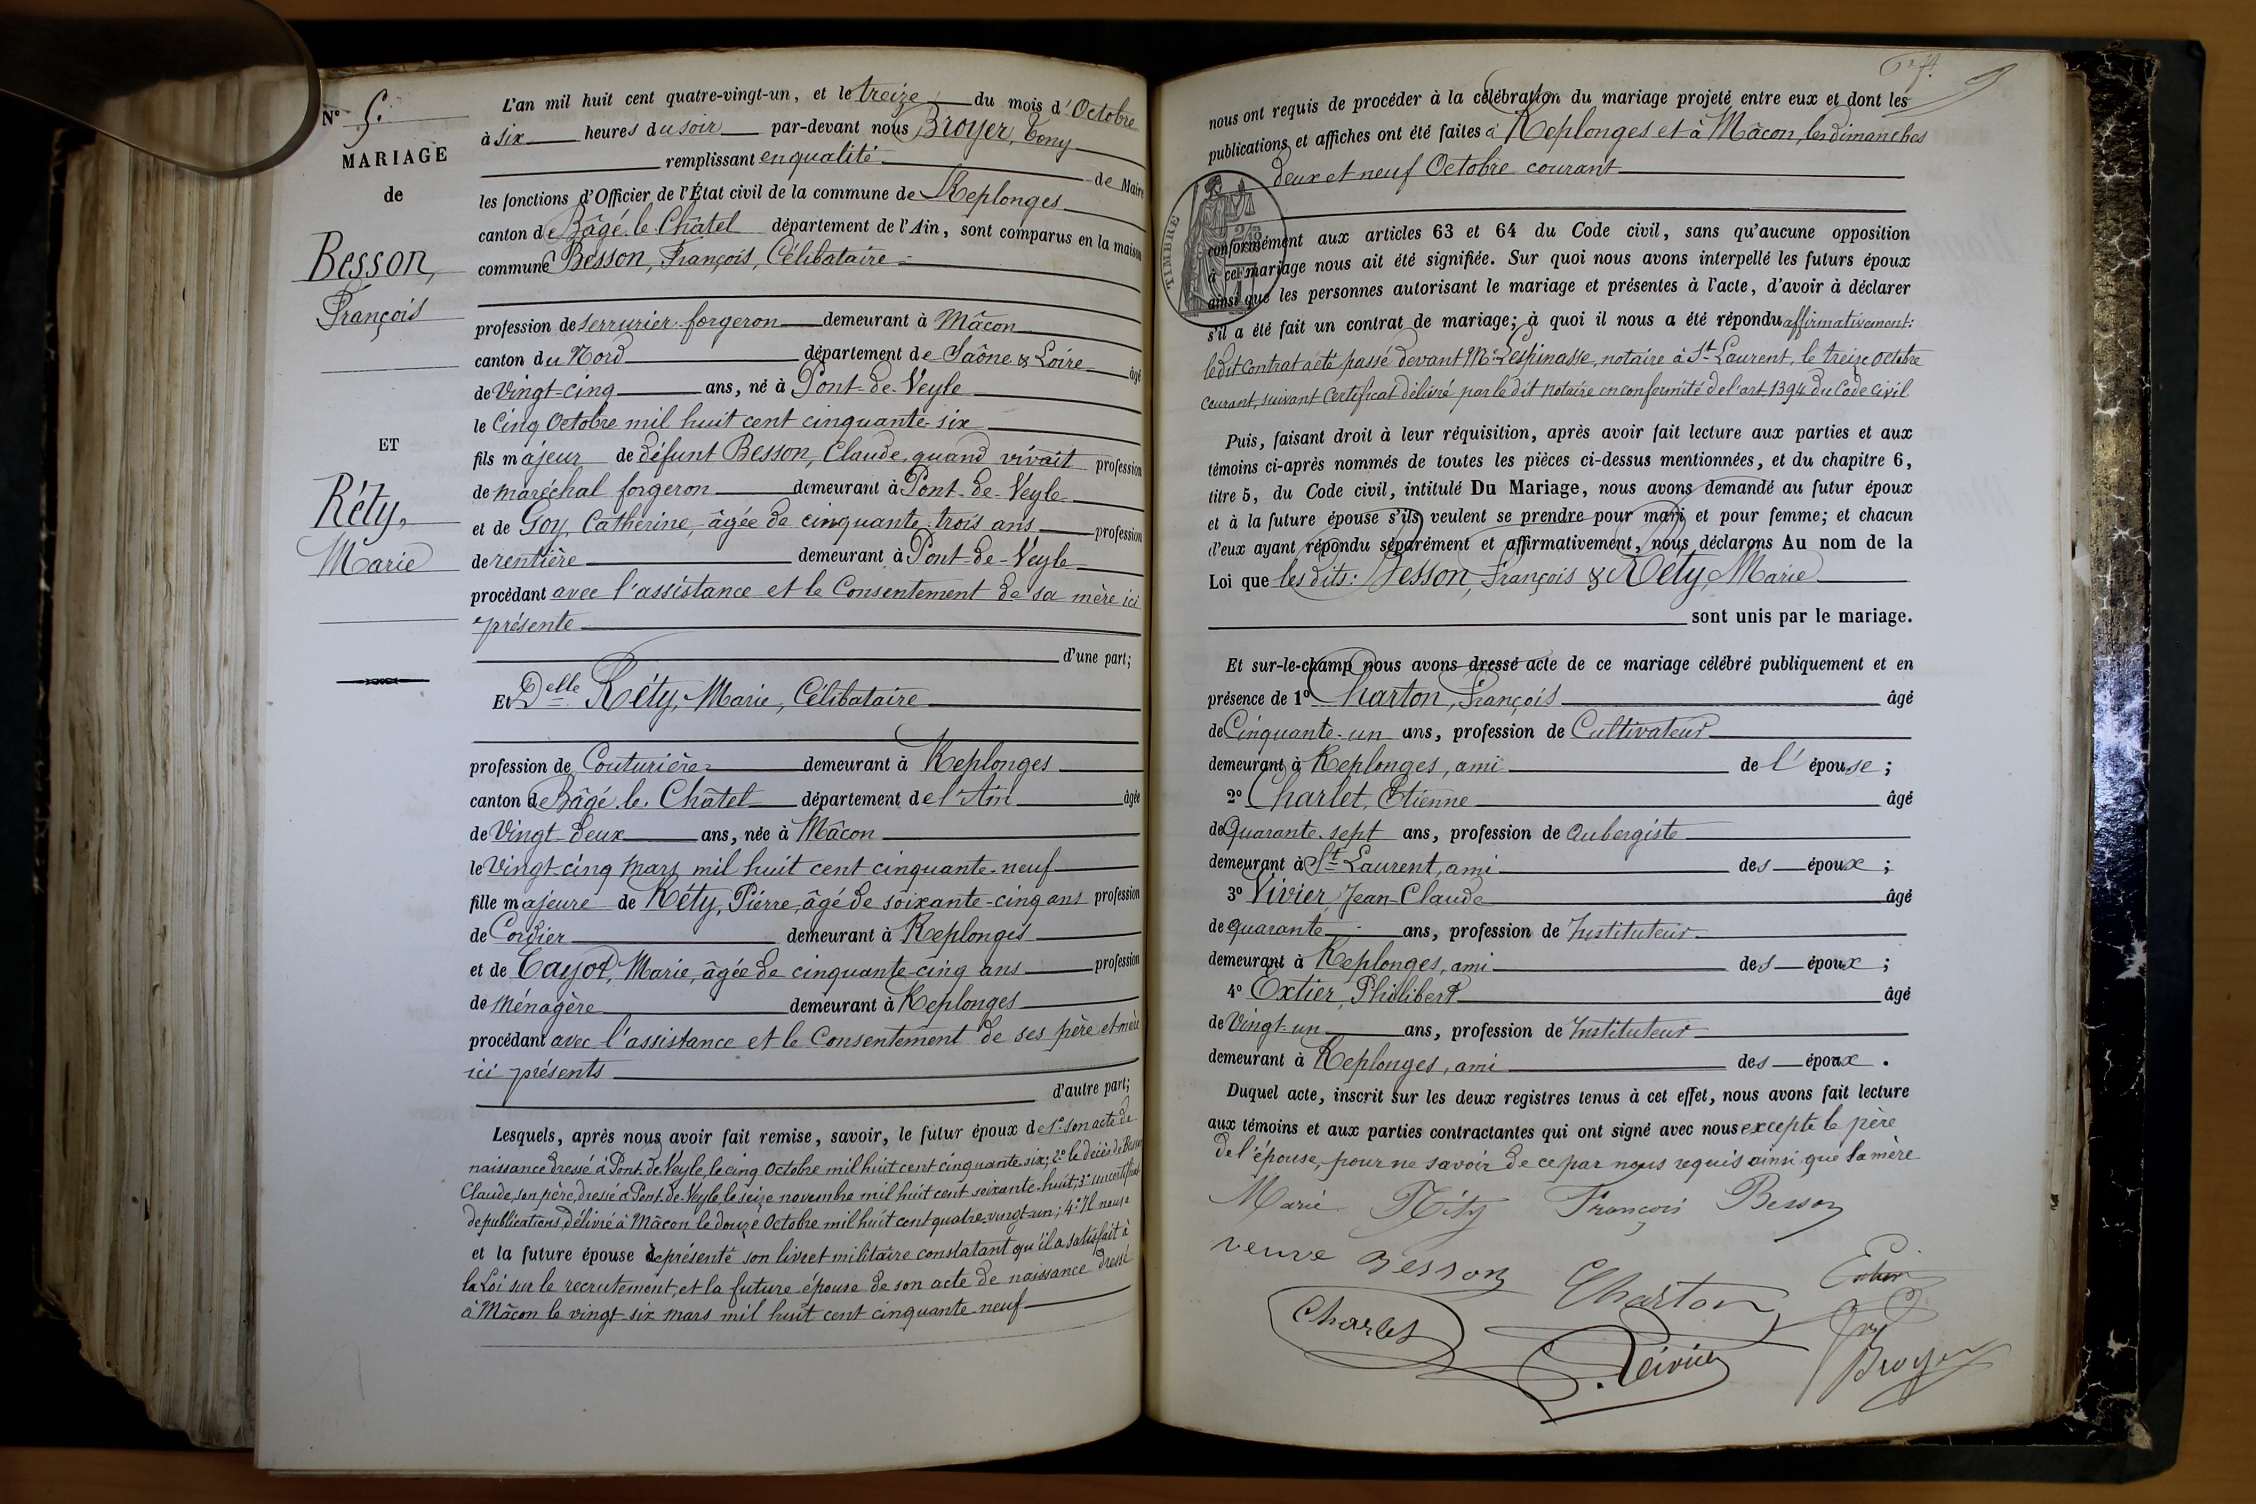 N° 5.
MARIAGE
de
Besson,
François
ET
Réty,
Marie
L'an mil huit cent quatre-vingt-un, et le treize du mois d'Octobre
à six heures du soir par-devant nous Broyer, Tony
remplissant en qualité de Maire
les fonctions d'Officier de l'État civil de la commune de Replonges
canton de Bâgé-le-Châtel département de l'Ain, sont comparus en la maison
commune Besson, François, Célibataire
profession de serrurier-forgeron demeurant à Mâcon
canton du Nord département de Saône & Loire âgé
de Vingt-cinq ans, né à Pont-de-Veyle
le Cinq Octobre mil huit cent cinquante-six
fils majeur de défunt Besson, Claude, quand vivait profession
de maréchal forgeron demeurant à Pont-de-Veyle
et de Goy, Catherine, âgée de cinquante-trois ans profession
de rentière demeurant à Pont-de-Veyle
procédant avec l'assistance et le Consentement de sa mère ici
présente
d'une part;
Et Delle Réty, Marie, Célibataire
profession de Couturière demeurant à Replonges
canton de Bâgé-le-Châtel département de l'Ain âgée
de Vingt-deux ans, née à Mâcon
le Vingt-cinq Mars mil huit cent cinquante-neuf
fille majeure de Réty, Pierre, âgé de soixante-cinq ans profession
de Cordier demeurant à Replonges
et de Tayot, Marie, âgée de cinquante-cinq ans profession
de Ménagère demeurant à Replonges
procédant avec l'assistance et le Consentement de ses père et mère
ici présents
d'autre part;
Lesquels, après nous avoir fait remise, savoir, le futur époux de 1° son acte de
naissance dressé à Pont-de-Veyle, le cinq Octobre mil huit cent cinquante-six; 2° le décès de Besson
Claude, son père, dressé à Pont-de-Veyle le seize novembre mil huit cent soixante-huit; 3° un certificat
de publications, délivré à Mâcon le douze Octobre mil huit cent quatre-vingt-un; 4° Il nous a
et la future épouse de présenté son livret militaire constatant qu'il a satisfait à
la Loi sur le recrutement, et la future épouse de son acte de naissance dressé
à Mâcon le vingt-six mars mil huit cent cinquante-neuf
nous ont requis de procéder à la célébration du mariage projeté entre eux et dont les
publications et affiches ont été faites à Replonges et à Mâcon, les dimanches
deux et neuf Octobre courant
TIMBRE
conformément aux articles 63 et 64 du Code civil, sans qu'aucune opposition
à ce mariage nous ait été signifiée. Sur quoi nous avons interpellé les futurs époux
ainsi que les personnes autorisant le mariage et présentes à l'acte, d'avoir à déclarer
s'il a été fait un contrat de mariage; à quoi il nous a été répondu affirmativement:
le dit Contrat a été passé devant Me Lespinasse, notaire à St Laurent, le treize octobre
Courant, suivant Certificat délivré par le dit Notaire en conformité de l'art. 1394 du Code Civil
Puis, faisant droit à leur réquisition, après avoir fait lecture aux parties et aux
témoins ci-après nommés de toutes les pièces ci-dessus mentionnées, et du chapitre 6,
titre 5, du Code civil, intitulé Du Mariage, nous avons demandé au futur époux
et à la future épouse s'ils veulent se prendre pour mari et pour femme; et chacun
d'eux ayant répondu séparément et affirmativement, nous déclarons Au nom de la
Loi que les dits: Besson, François & Réty, Marie
sont unis par le mariage.
Et sur-le-champ nous avons dressé acte de ce mariage célébré publiquement et en
présence de 1° Charton, François âgé
de Cinquante-un ans, profession de Cultivateur
demeurant à Replonges, ami de l'épouse;
2° Charlet, Etienne âgé
de Quarante-sept ans, profession de Aubergiste
demeurant à St Laurent, ami des époux;
3° Vivier, Jean-Claude âgé
de quarante ans, profession de Instituteur
demeurant à Replonges, ami des époux;
4° Extier, Philibert âgé
de Vingt-un ans, profession de Instituteur
demeurant à Replonges, ami des époux.
Duquel acte, inscrit sur les deux registres tenus à cet effet, nous avons fait lecture
aux témoins et aux parties contractantes qui ont signé avec nous excepté le père
de l'épouse, pour ne savoir de ce par nous requis ainsi que sa mère
Marie Réty François Besson
veuve Besson Charton Extier
Charlet Vivier Broyer